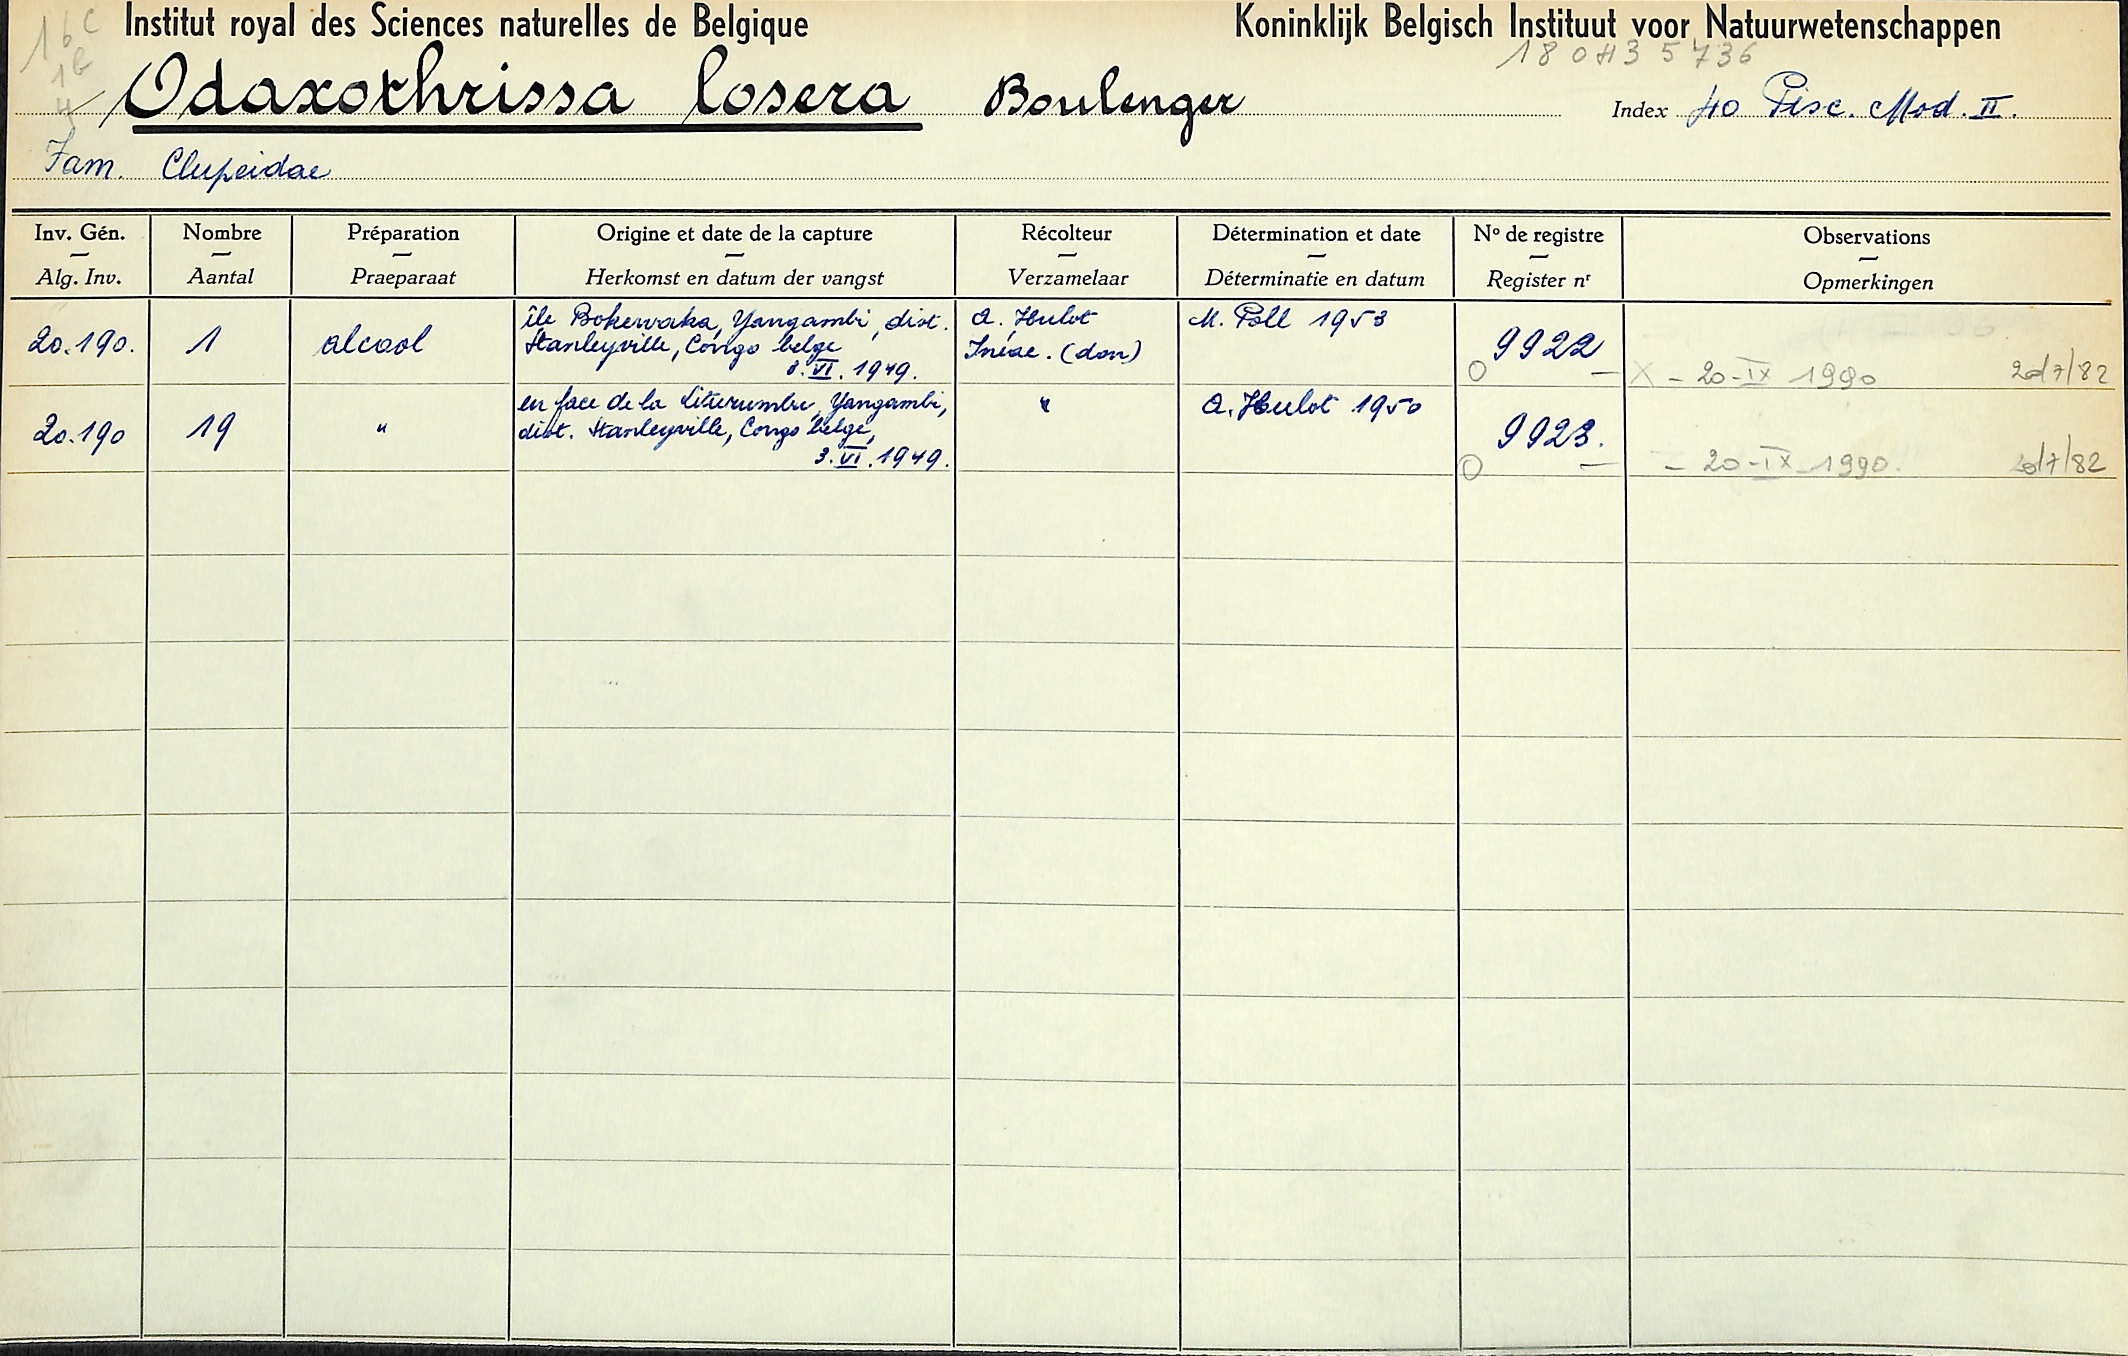 16C
Institut royal des Sciences naturelles de Belgique
Koninklijk Belgisch Instituut voor Natuurwetenschappen
18 04 3 5 736
Odaxothrissa losera Boulenger
Index 40 Pisc. Mod. II.
Fam. Clupeidae
Inv. Gén. Nombre Préparation Origine et date de la capture Récolteur Détermination et date Nº de registre Observations
Alg. Inv. Aantal Praeparaat Herkomst en datum der vangst Verzamelaar Déterminatie en datum Register nʳ Opmerkingen
île Bokewaka, Yangambi, dist. A. Hulot M. Poll 1953
20.190. 1 alcool Stanleyville, Congo belge Inéac. (don) 9922
3.VI.1949. O — X - 20-IX 1990 20/7/82
en face de la Yangambi, " A. Hulot 1950
20.190 19 " dist. Stanleyville, Congo belge, 9923.
3.VI.1949. O — - 20-IX-1990. 20/7/82